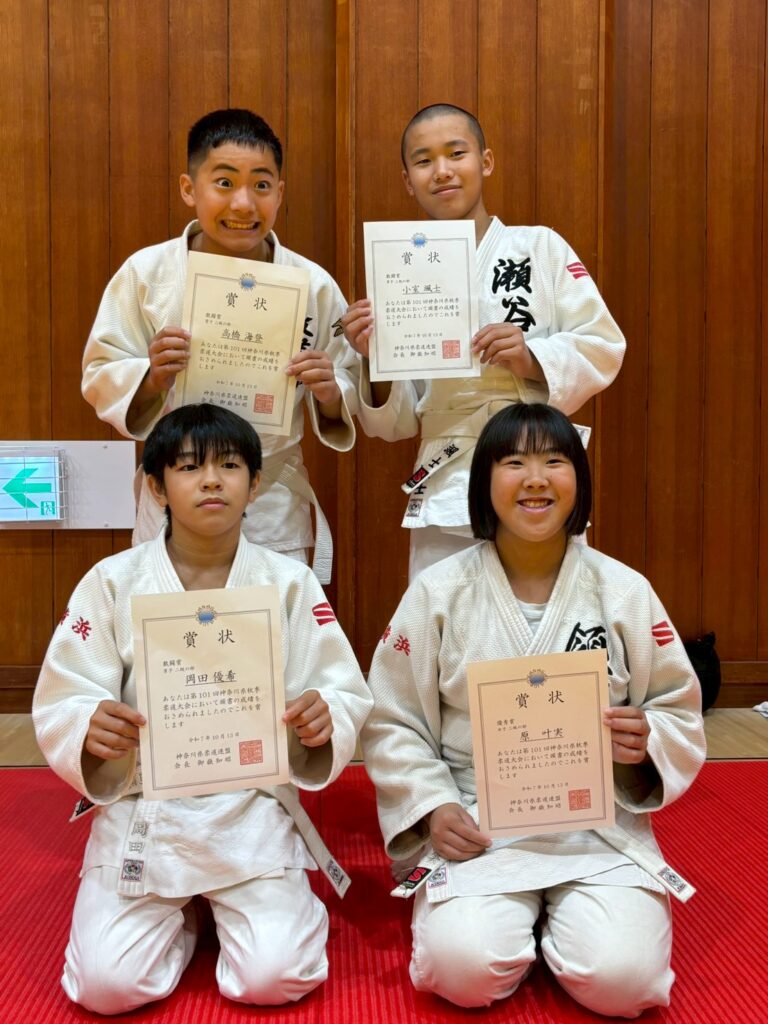 賞状
敢闘賞
男子 二級の部
高橋 海登
あなたは第101回神奈川県秋季
柔道大会において頭書の成績を
おさめられましたのでこれを賞
します
令和7年10月13日
神奈川県柔道連盟
会長 御嶽和昭
賞状
敢闘賞
男子 二級の部
小室 颯士
あなたは第101回神奈川県秋季
柔道大会において頭書の成績を
おさめられましたのでこれを賞
します
令和7年10月13日
神奈川県柔道連盟
会長 御嶽和昭
瀬谷
賞状
敢闘賞
男子 二級の部
岡田 優希
あなたは第101回神奈川県秋季
柔道大会において頭書の成績を
おさめられましたのでこれを賞
します
令和7年10月13日
神奈川県柔道連盟
会長 御嶽和昭
横浜
岡田
賞状
優秀賞
女子 二級の部
原 叶実
あなたは第101回神奈川県秋季
柔道大会において頭書の成績を
おさめられましたのでこれを賞
します
令和7年10月13日
神奈川県柔道連盟
会長 御嶽和昭
横浜